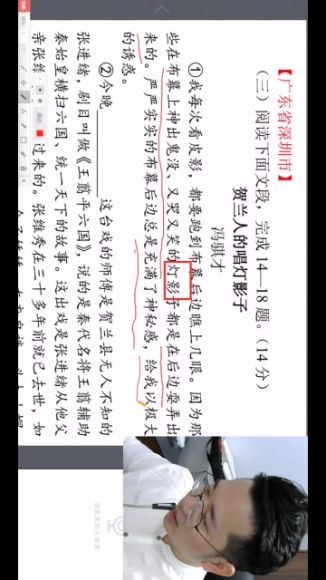 【广东省深圳市】
（三）阅读下面文段，完成14—18题。（14分）
贺兰人的唱灯影子
冯骥才
①我每次看皮影，都要跑到布幕后边瞧上几眼。因为那
些在布幕上神出鬼没、又哭又笑的灯影子都是在后边耍弄出
来的。严严实实的布幕后边总是充满了神秘感，给我以极大
的诱惑。
②今晚 这台戏的师傅是贺兰县无人不知的
张进绪，剧目叫做《王翦平六国》，说的是秦代名将王翦辅助
秦始皇横扫六国、统一天下的故事。这出戏是张进绪从他父
亲张维 过来的。张维秀在三十多年前就已去世，如